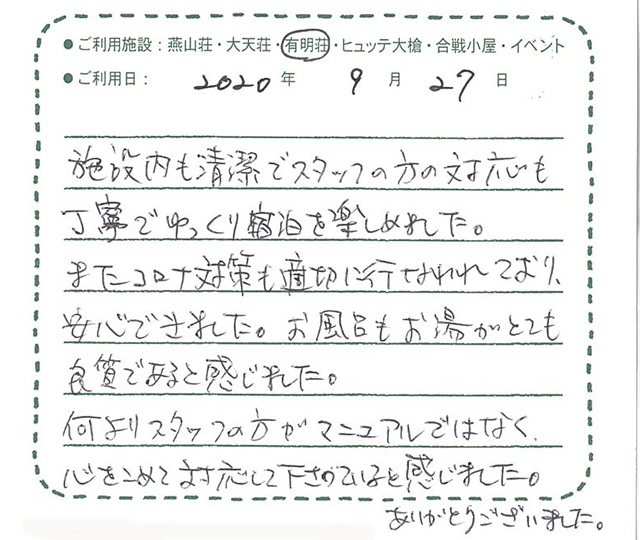 ● ご利用施設：燕山荘・大天荘・有明荘・ヒュッテ大槍・合戦小屋・イベント
● ご利用日： 2020 年 9 月 27 日
施設内も清潔でスタッフの方の対応も
丁寧でゆっくり宿泊を楽しめました。
またコロナ対策も適切に行なわれており、
安心できました。お風呂もお湯がとても
良質であると感じました。
何よりスタッフの方がマニュアルではなく、
心をこめて対応して下さっていると感じました。
ありがとうございました。